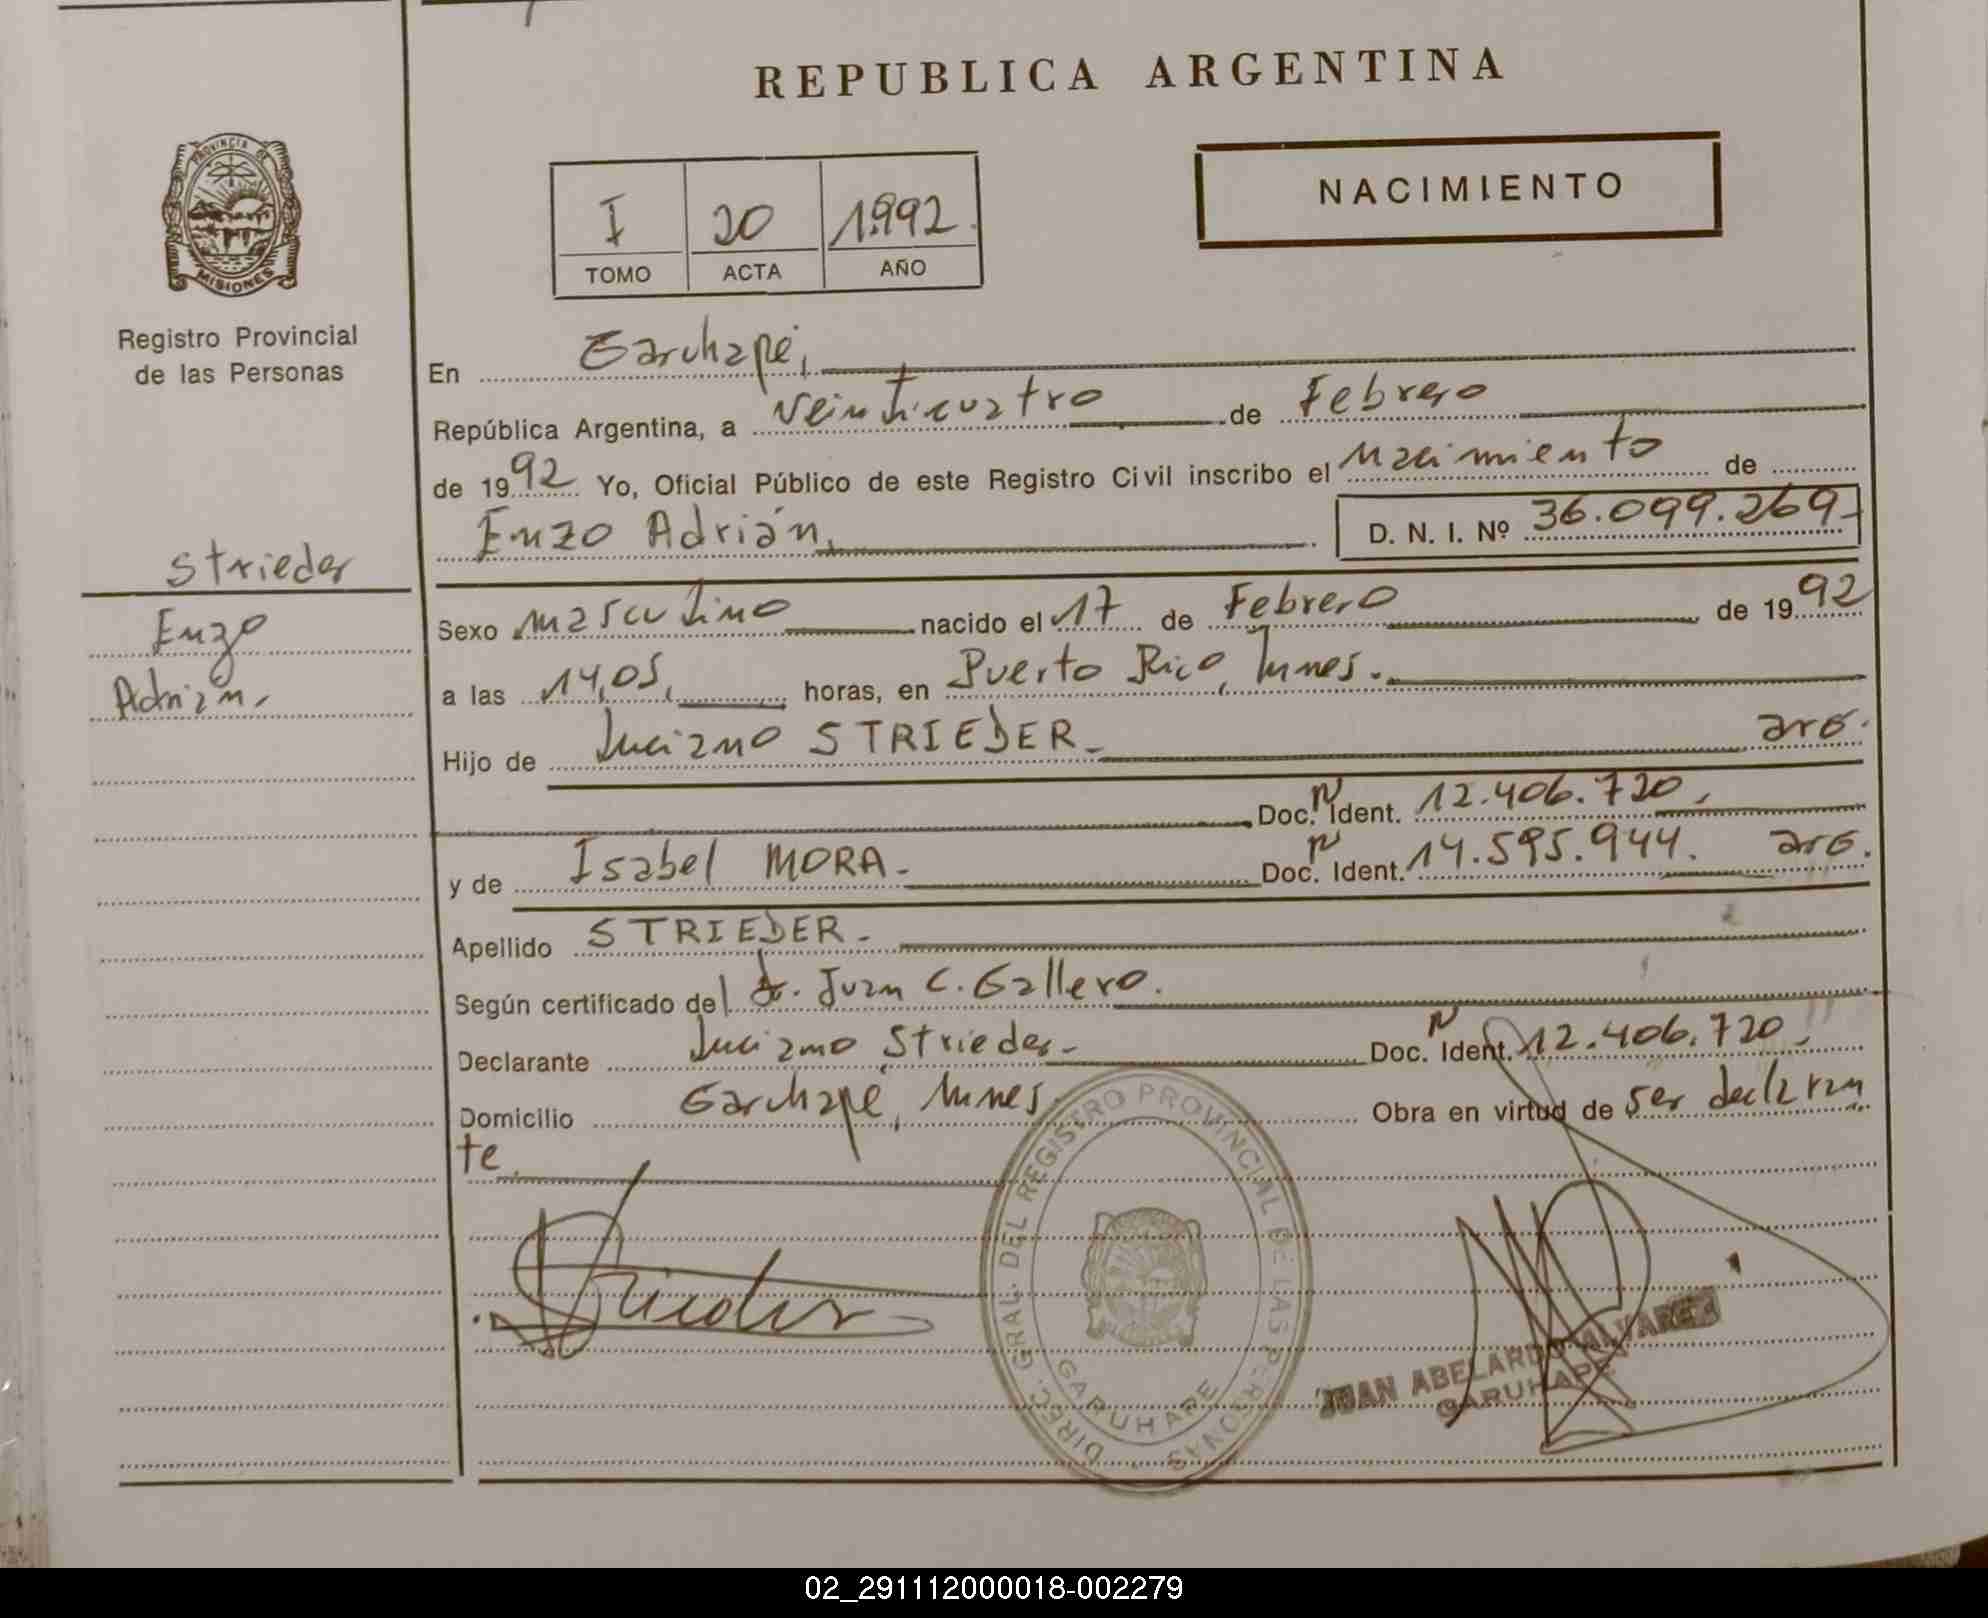 REPUBLICA ARGENTINA
PROVINCIA DE
MISIONES
Registro Provincial
de las Personas
NACIMIENTO
I 20 1.992.
TOMO ACTA AÑO
En Garuhapé,
República Argentina, a veinticuatro de Febrero
de 1992 Yo, Oficial Público de este Registro Civil inscribo el nacimiento de
Enzo Adrián, D. N. I. Nº 36.099.269-
Strieder
Enzo
Adrián,
Sexo masculino nacido el 17 de Febrero de 1992
a las 14,05, horas, en Puerto Rico,
Hijo de Luciano STRIEDER- arg.
Doc. N Ident. 12.406.720,
y de Isabel MORA- Doc. N Ident. 14.595.944. arg.
Apellido STRIEDER-
Según certificado del Dr. Juan C. Gallero.
Declarante Luciano Strieder- Doc. N Ident. 12.406.720,
Domicilio Garuhapé, Obra en virtud de ser declaran
te,
Strieder
DIREC. GRAL. DEL REGISTRO PROVINCIAL DE LAS PERSONAS
GARUHAPE
JUAN ABELARDO ALVAREZ
GARUHAPE
02_291112000018-002279